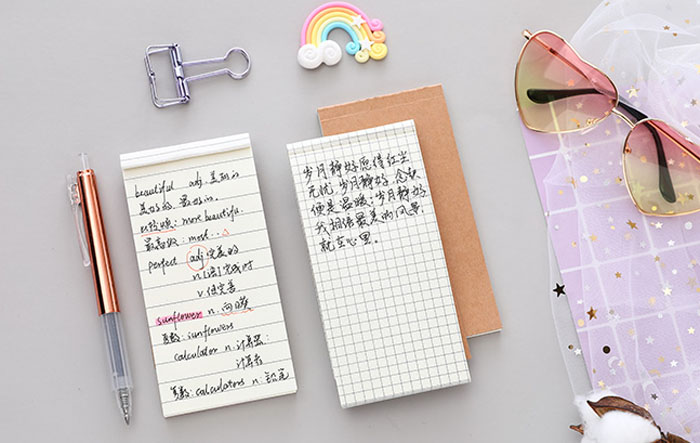 beautiful adj 美丽的
美好的,最好的.
比较级: most beautiful.
最高级: most...
perfect adj 完美的
n [语] 完成时
v. 使完善
sunflower n. 向日葵
复数: sunflowers
calculator n. 计算器;
计算者
复数: calculators n. 设定
岁月静好愿借红尘
无忧 岁月静好 念
便是温暖;岁月静好
我相信最美的风景
就在心里.